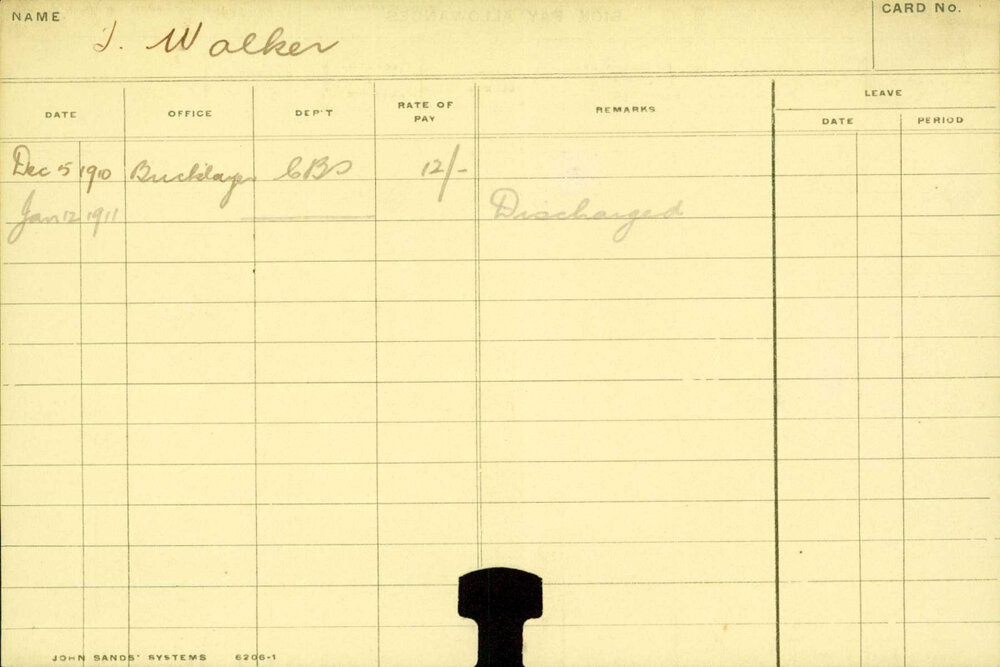 NAME J. Walker
CARD No.
DATE OFFICE DEP'T RATE OF PAY REMARKS LEAVE
DATE PERIOD
Dec 5 1910 Bricklayer CBS 12/-
Jan 12 1911 Discharged
JOHN SANDS' SYSTEMS 6206-1